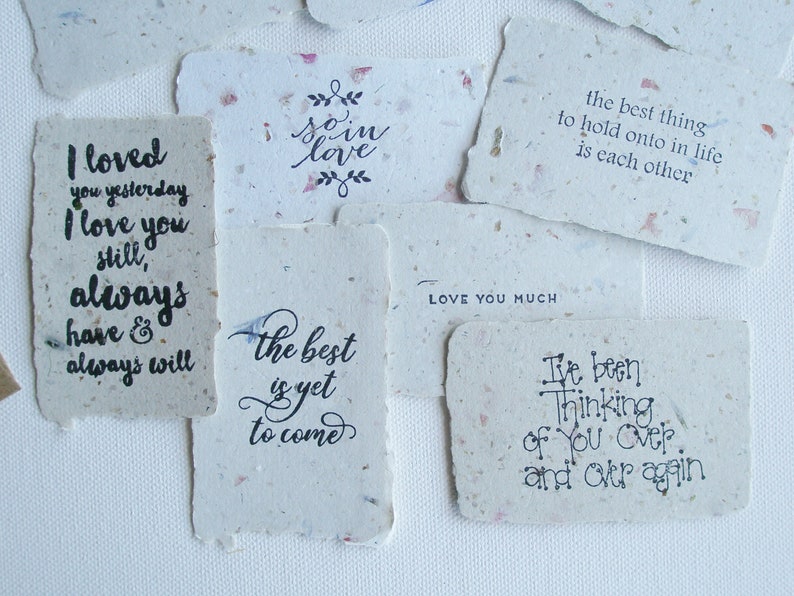 I loved
you yesterday
I love you
still,
always
have &
always will
so in
love
the best thing
to hold onto in life
is each other
the best
is yet
to come
LOVE YOU MUCH
I've been
Thinking
of You Over
and over again